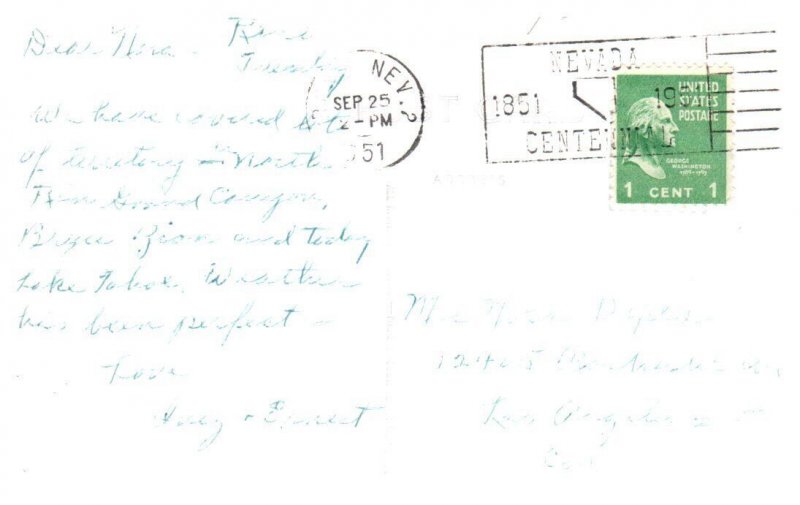 Dear Nora - Reno
Tuesday
We have covered lots
of territory - North
Rim Grand Canyon,
Bryce Zion and today
Lake Tahoe. Weather
has been perfect -
Love
Inez + Ernest
NEV. 2
SEP 25
2 PM
1951
NEVADA
1851 195
CENTENNIAL
UNITED
STATES
POSTAGE
GEORGE
WASHINGTON
1789-1797
1 CENT 1
ADDRESS
Mrs Nora
1240
Los Angeles
Cal